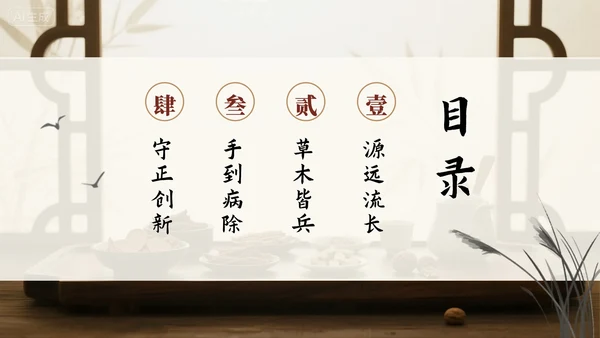 目录
壹
源远流长
贰
草木皆兵
叁
手到病除
肆
守正创新
AI生成